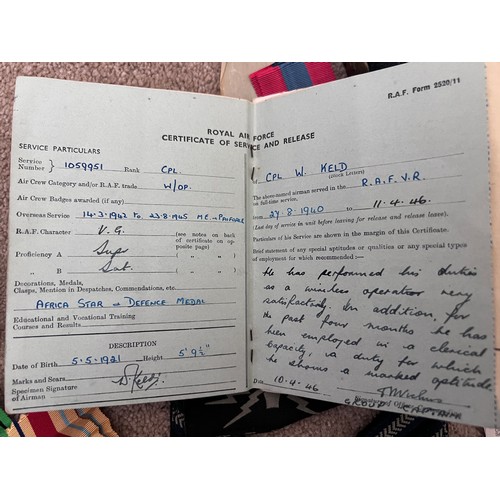 ROYAL AIR FORCE
CERTIFICATE OF SERVICE AND RELEASE
SERVICE PARTICULARS
Service Number } 1059951 Rank CPL.
Air Crew Category and/or R.A.F. trade W/OP.
Air Crew Badges awarded (if any)
Overseas Service 14.3.1942 to 23.8.1945 M.E.
R.A.F. Character V.G. (see notes on back of certificate on opposite page)
Proficiency A Supr ( " " " )
" B Sat. ( " " " )
Decorations, Medals,
Clasps, Mention in Despatches, Commendations, etc.
AFRICA STAR DEFENCE MEDAL
Educational and Vocational Training
Courses and Results
DESCRIPTION
Date of Birth 5.5.1921 Height 5' 9½"
Marks and Scars
Specimen Signature
of Airman
R.A.F. Form 2520/11
CPL W. KELD
(Block Letters)
The above-named airman served in the R.A.F.V.R.
on full-time service,
from 27.8.1940 to 11.4.46.
(Last day of service in unit before leaving for release and release leave).
Particulars of his Service are shown in the margin of this Certificate.
Brief statement of any special aptitudes or qualities or any special types
of employment for which recommended :—
He has performed his duties
as a wireless operator very
satisfactorily. In addition, for
the past four months he has
been employed in a clerical
capacity, a duty for which
he shows a marked aptitude.
Date 10.4.46
GROUP CAPTAIN